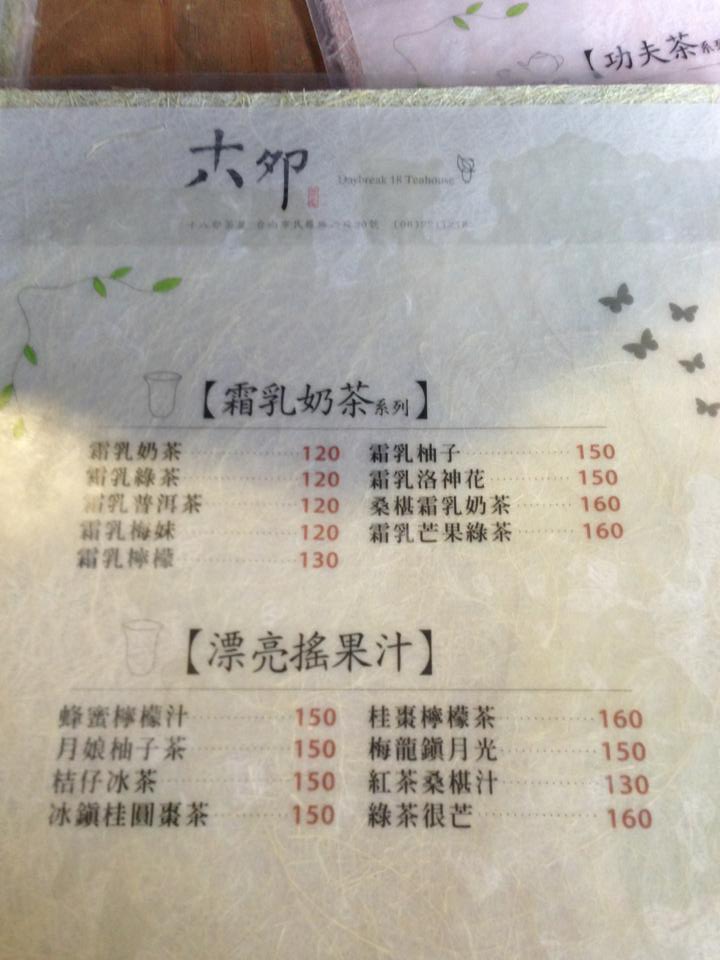 【功夫茶系列
十八卯
Daybreak 18 Teahouse
【霜乳奶茶系列】
霜乳奶茶 120 霜乳柚子 150
霜乳綠茶 120 霜乳洛神花 150
霜乳普洱茶 120 桑椹霜乳奶茶 160
霜乳梅妹 120 霜乳芒果綠茶 160
霜乳檸檬 130
【漂亮搖果汁】
蜂蜜檸檬汁 150 桂棗檸檬茶 160
月娘柚子茶 150 梅龍鎭月光 150
桔仔冰茶 150 紅茶桑椹汁 130
冰鎭桂圓棗茶 150 綠茶很芒 160